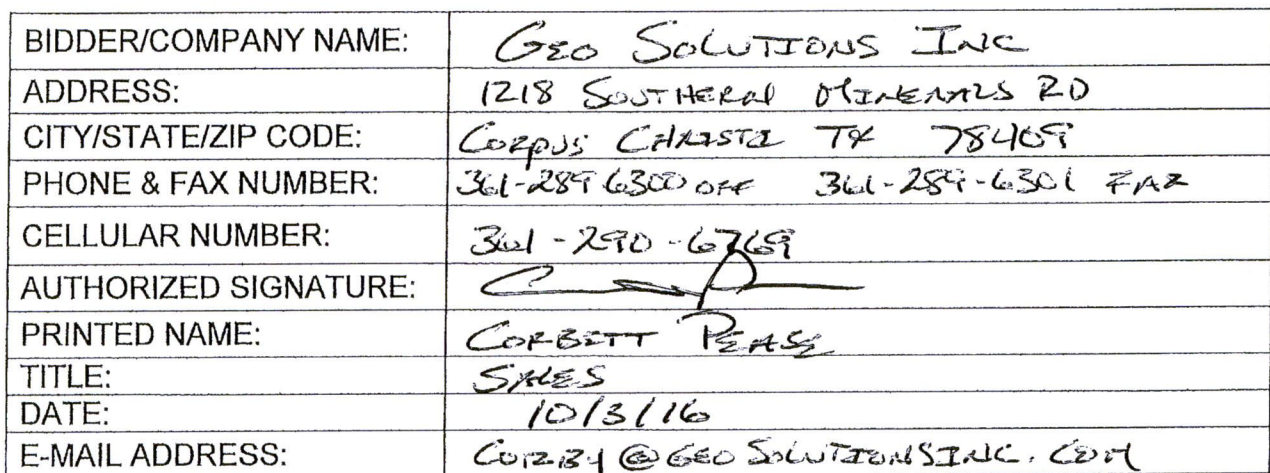 BIDDER/COMPANY NAME: GEO SOLUTIONS INC
ADDRESS: 1218 SOUTHERN MINERALS RD
CITY/STATE/ZIP CODE: CORPUS CHRISTI TX 78409
PHONE & FAX NUMBER: 361-289 6300 OFF 361-289-6301 FAX
CELLULAR NUMBER: 361-290-6769
AUTHORIZED SIGNATURE:
PRINTED NAME: CORBETT PEASE
TITLE: SALES
DATE: 10/3/16
E-MAIL ADDRESS: CORBY@GEOSOLUTIONSINC.COM